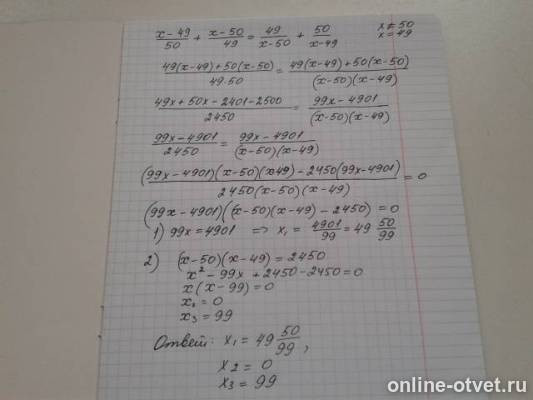 (x-49)/50 + (x-50)/49 = 49/(x-50) + 50/(x-49)
x≠50
x≠49
(49(x-49)+50(x-50))/(49·50) = (49(x-49)+50(x-50))/((x-50)(x-49))
(49x+50x-2401-2500)/2450 = (99x-4901)/((x-50)(x-49))
(99x-4901)/2450 = (99x-4901)/((x-50)(x-49))
((99x-4901)(x-50)(x-49)-2450(99x-4901))/(2450(x-50)(x-49)) = 0
(99x-4901)((x-50)(x-49)-2450)=0
1) 99x=4901 => x₁ = 4901/99 = 49 50/99
2) (x-50)(x-49)=2450
x²-99x+2450-2450=0
x(x-99)=0
x₂=0
x₃=99
Ответ: x₁=49 50/99,
x₂=0
x₃=99
online-otvet.ru